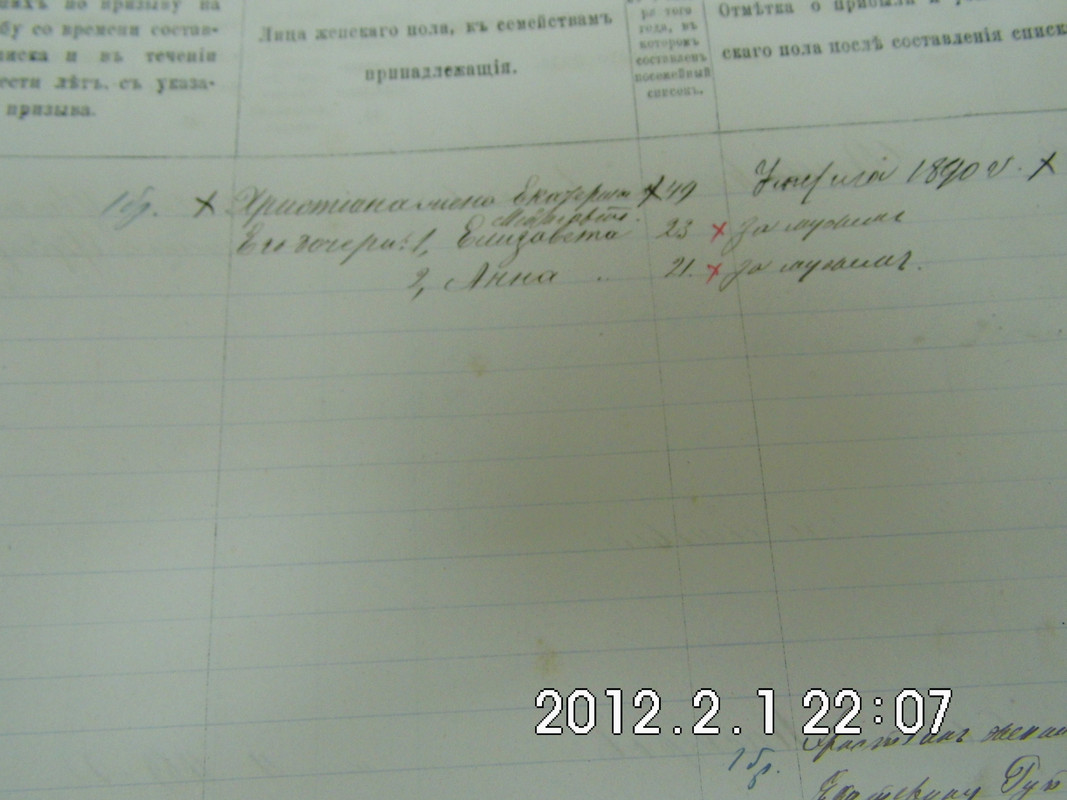 по призыву на
бу со времени состав-
иска и въ теченіи
ести лѣтъ, съ указа-
призыва.
Лица женскаго пола, къ семействамъ
принадлежащія.
ра того
года, въ
которомъ
составленъ
посемейный
списокъ.
Отмѣтка о прибыли и
скаго пола послѣ составленія списк
1 бр. х Христіана жена Екатерина х 49 Умерла 1890 г. х
Его дочери: 1, Елизавета 23 х За мужемъ
2, Анна 21. х За мужемъ.
2012.2.1 22:07
1 бр.